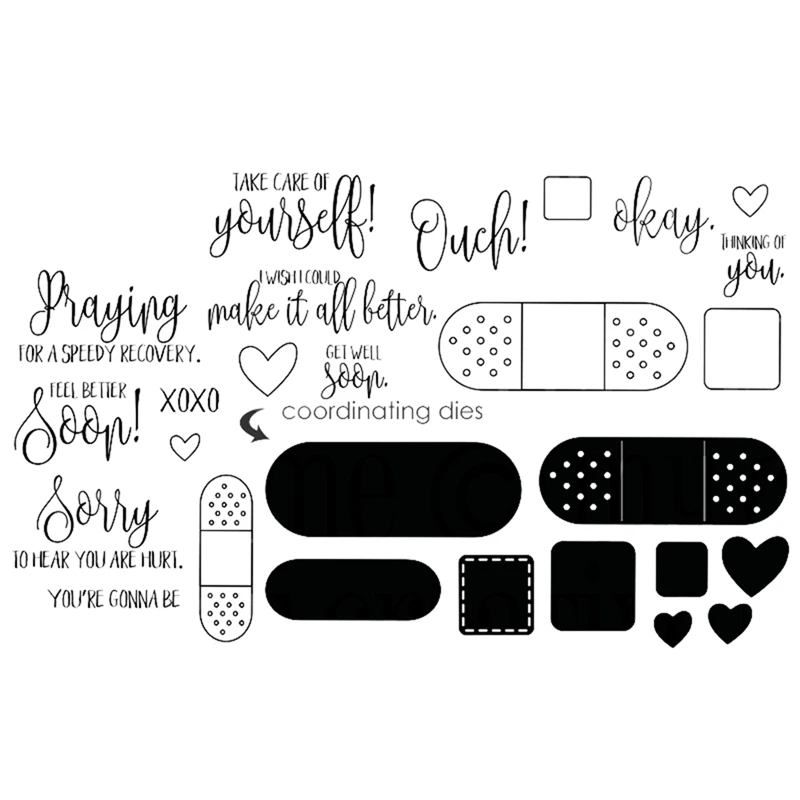 TAKE CARE OF
yourself!
Ouch!
okay.
THINKING OF
you.
Praying
FOR A SPEEDY RECOVERY.
I WISH I COULD
make it all better.
GET WELL
soon.
FEEL BETTER
Soon!
XOXO
coordinating dies
Sorry
TO HEAR YOU ARE HURT.
YOU'RE GONNA BE